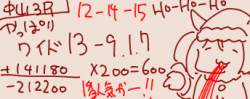 中山3R
やっぱり
12-14-15
Ho-Ho-Ho
ワイド 13-9.1.7
+141180 ×200=600
-212200
人気がー!!